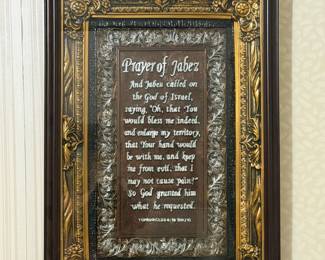 Prayer of Jabez
And Jabez called on
the God of Israel,
saying, "Oh, that You
would bless me indeed,
and enlarge my territory,
that Your hand would
be with me, and keep
me from evil, that I
may not cause pain!"
So God granted him
what he requested.